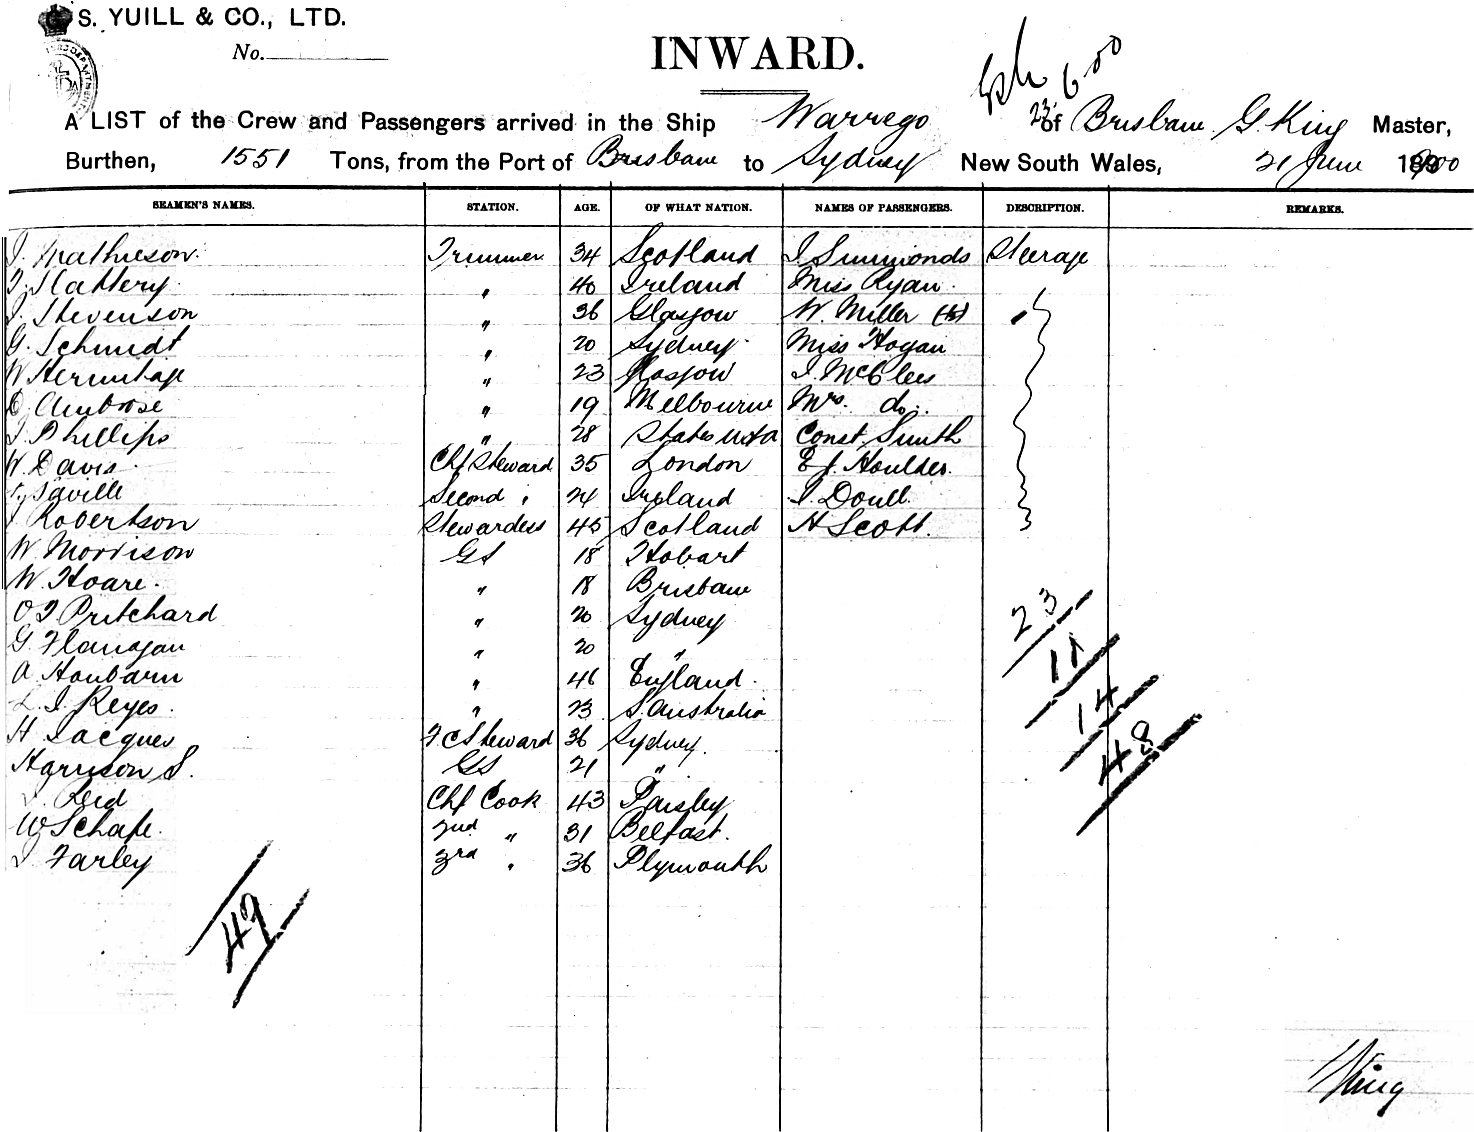 G. S. YUILL & CO., LTD.
No.
INWARD.
23.6.00
A LIST of the Crew and Passengers arrived in the Ship Warrego of Brisbane G. King Master,
Burthen, 1551 Tons, from the Port of Brisbane to Sydney New South Wales, 21 June 1900
SEAMEN'S NAMES. STATION. AGE. OF WHAT NATION. NAMES OF PASSENGERS. DESCRIPTION. REMARKS.
J. Mathieson. Trimmer 34 Scotland J Simmonds Steerage
T. Slattery " 40 Ireland Miss Ryan.
J. Stevenson " 36 Glasgow W. Miller "
G. Schmidt " 20 Sydney Miss Hogan
W Hermitage " 23 Glasgow J. McClees
D. Ambrose " 19 Melbourne Mrs. do.
J. Phillips " 28 States USA Const Smith
W. Davis Chf Steward 35 London E J. Houlder
Saville Second " 24 Ireland J. Doull
J Robertson Stewardess 45 Scotland H Scott.
W. Morrison GS 18 Hobart
W. Hoare. " 18 Brisbane
O J Pritchard " 20 Sydney
G. Flanagan " 20 "
A Houbarn " 46 England.
L. J. Keyes. " 23 S. Australia
H Jacques F C Steward 36 Sydney.
Harrison S. GS 21 "
J. Reid Chf Cook 43 Paisley
W Schafe. 2nd " 31 Belfast.
J. Farley 3rd " 36 Plymouth
23
11
14
48
49
G King